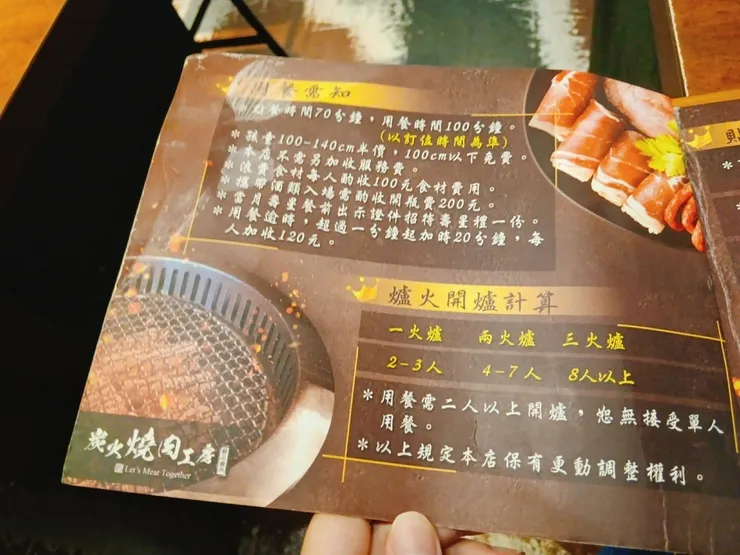 用餐需知
點餐時間70分鐘,用餐時間100分鐘。
(以訂位時間為準)
*孩童100-140cm半價,100cm以下免費。
*本店不需另加收服務費。
*浪費食材每人酌收100元食材費用。
*攜帶酒類入場需酌收開瓶費200元。
*當月壽星餐前出示證件招待壽星禮一份。
*用餐逾時,超過一分鐘起加時20分鐘,每
人加收120元。
爐火開爐計算
一火爐 兩火爐 三火爐
2-3人 4-7人 8人以上
*用餐需二人以上開爐,恕無接受單人
用餐。
*以上規定本店保有更動調整權利。
炭火燒肉工房
Let's Meat Together